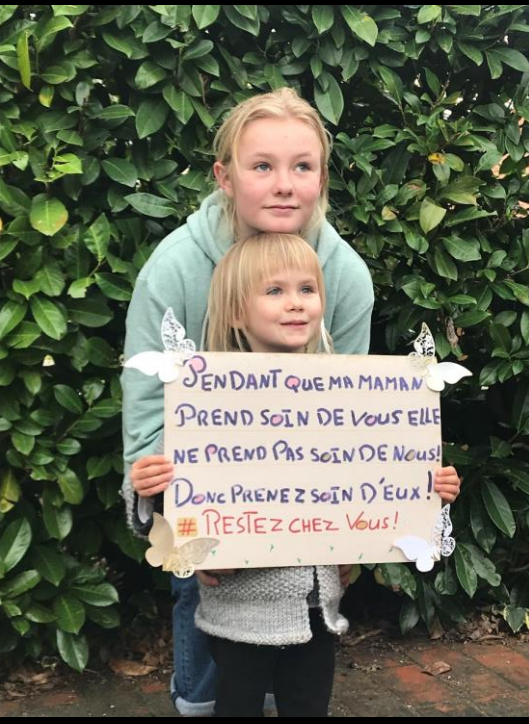 PENDANT QUE MA MAMAN
PREND SOIN DE VOUS ELLE
NE PREND PAS SOIN DE NOUS!
DONC PRENEZ SOIN D'EUX!
# RESTEZ CHEZ VOUS!